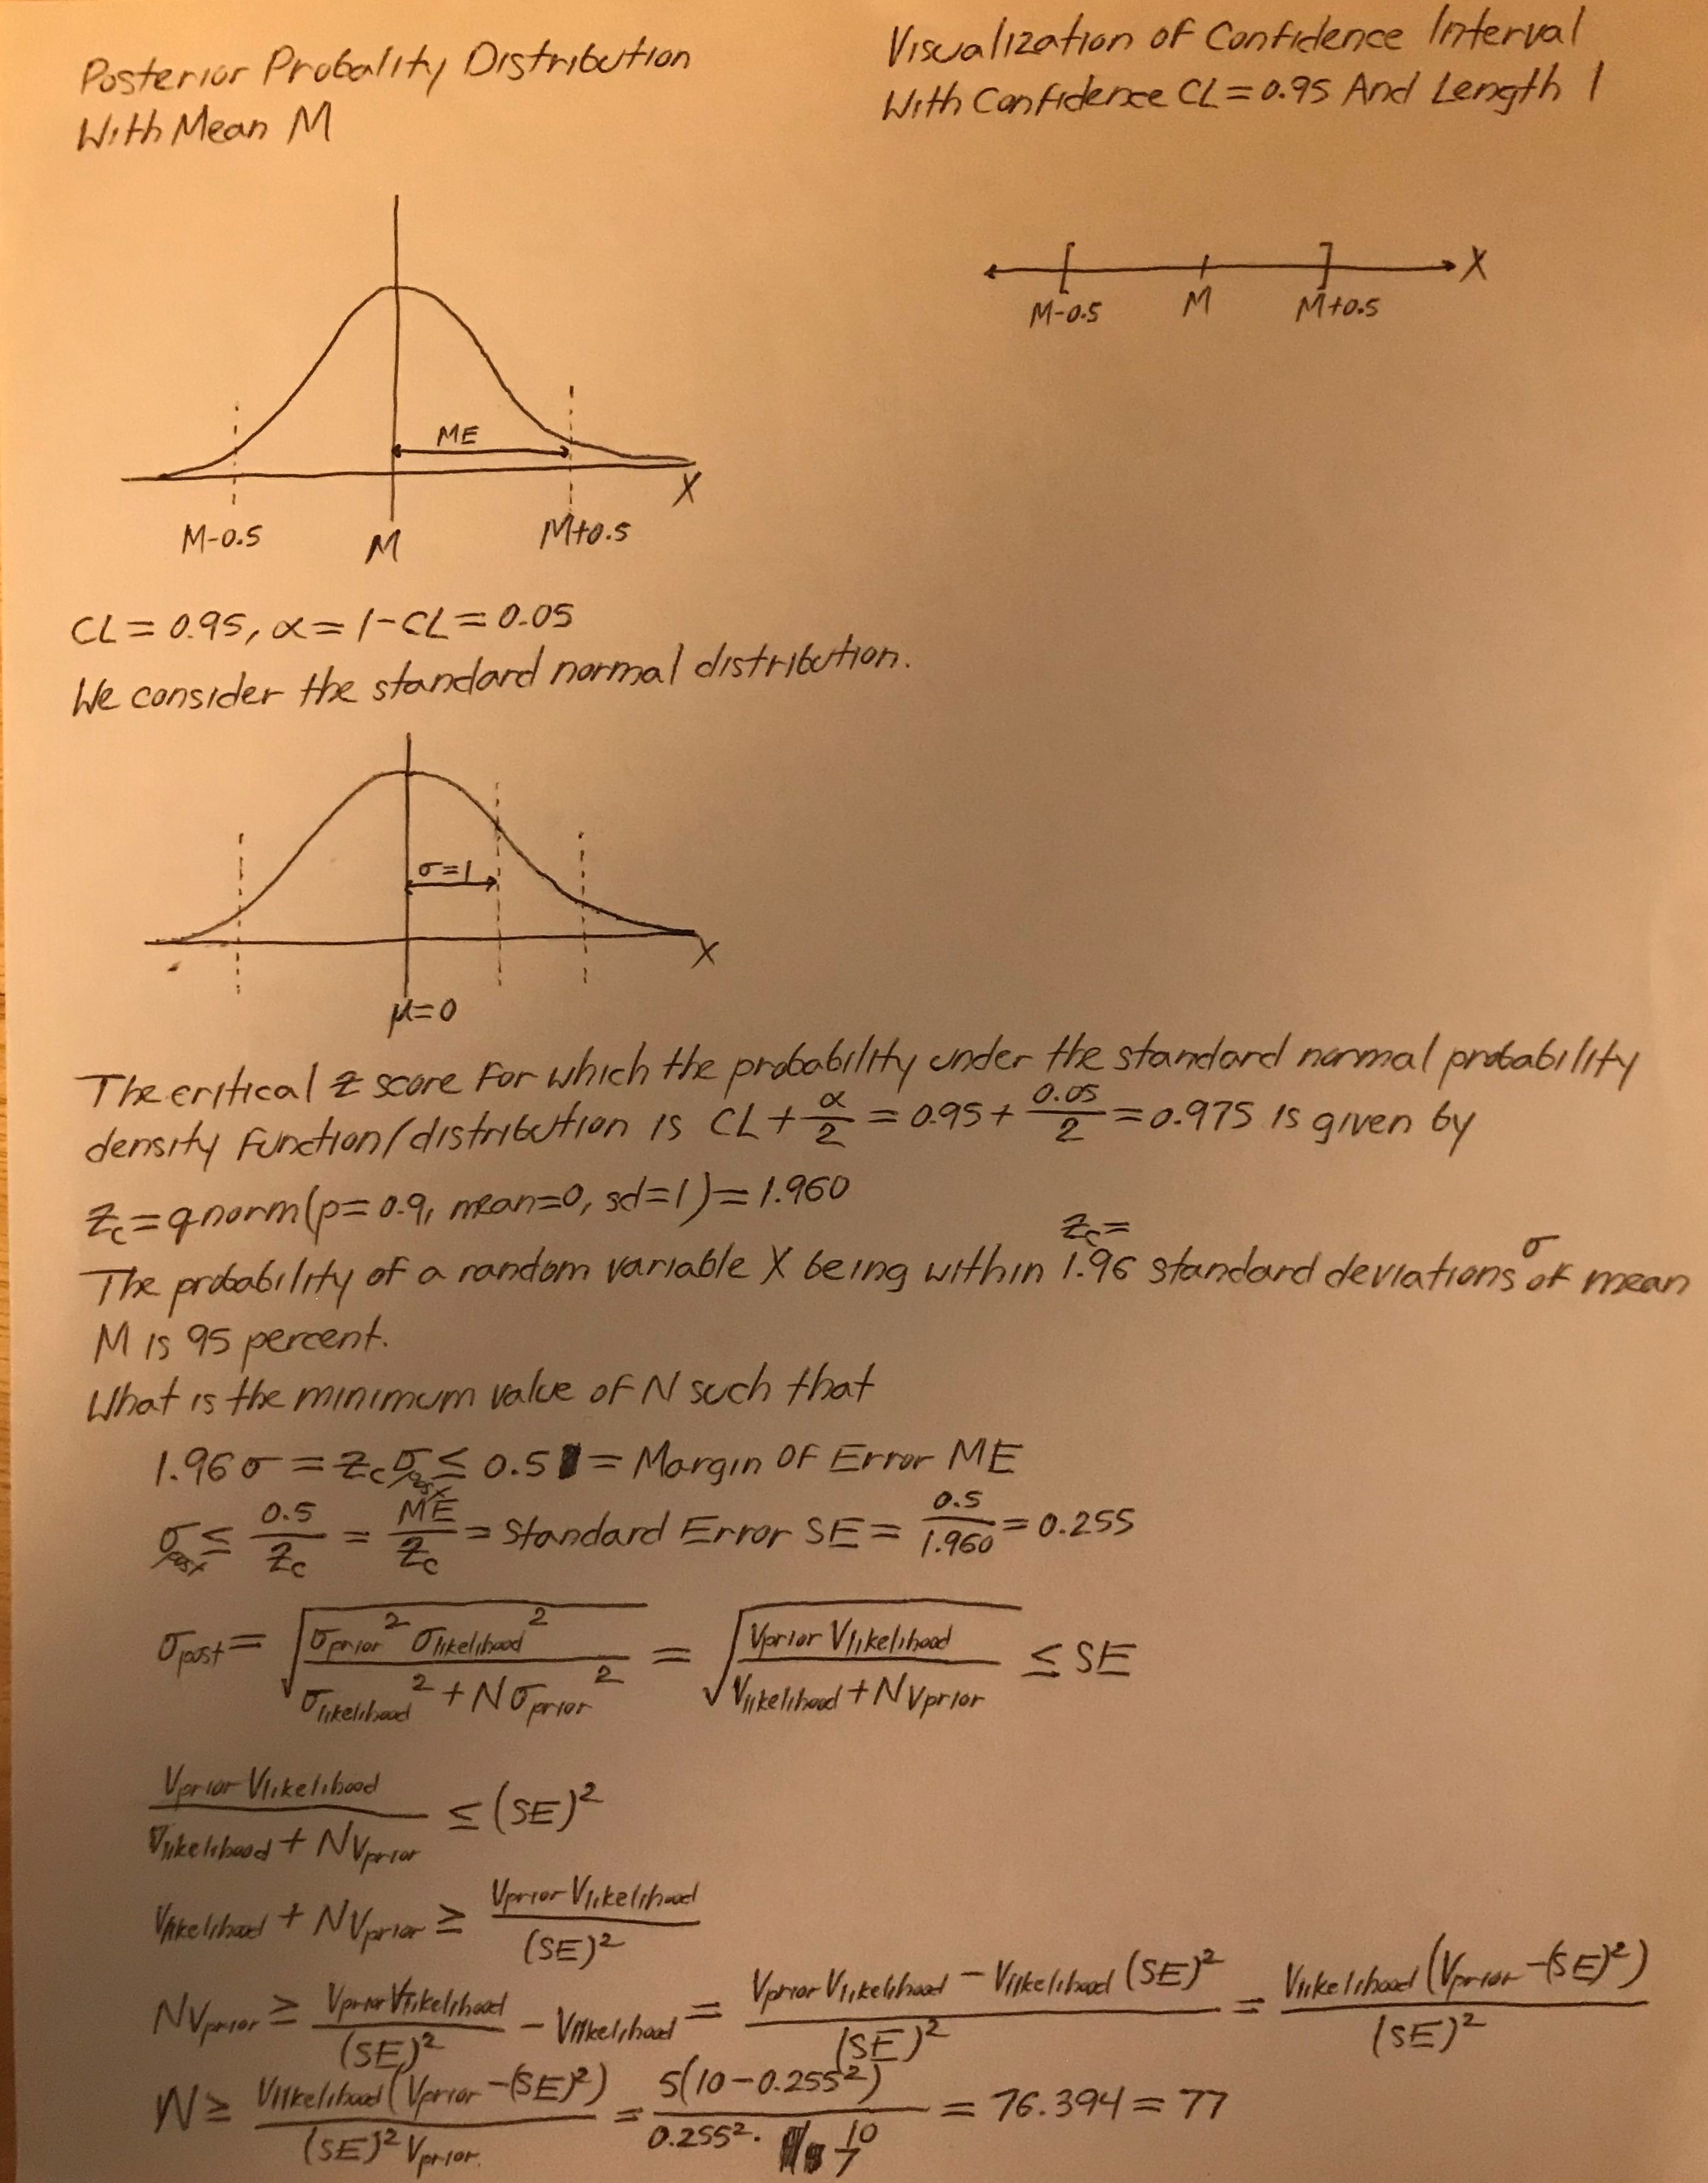 Posterior Probality Distribution
With Mean M
Visualization of Confidence Interval
With Confidence CL = 0.95 And Length 1
ME
X
M-0.5
M
M+0.5
X
M-0.5
M
M+0.5
CL = 0.95, α = 1-CL = 0.05
We consider the standard normal distribution.
σ=1
X
μ=0
The critical z score for which the probability under the standard normal probability
density function/distribution is CL + α/2 = 0.95 + 0.05/2 = 0.975 is given by
z_c = qnorm(p = 0.9, mean=0, sd=1) = 1.960
The probability of a random variable X being within z_c = 1.96 standard deviations σ of mean
M is 95 percent.
What is the minimum value of N such that
1.96 σ = z_c σ_post ≤ 0.5 = Margin Of Error ME
σ_post ≤ 0.5/z_c = ME/z_c = Standard Error SE = 0.5/1.960 = 0.255
σ_post = √(σ_prior² σ_likelihood² / (σ_likelihood² + N σ_prior²)) = √(V_prior V_likelihood / (V_likelihood + N V_prior)) ≤ SE
V_prior V_likelihood / (V_likelihood + N V_prior) ≤ (SE)²
V_likelihood + N V_prior ≥ V_prior V_likelihood / (SE)²
N V_prior ≥ V_prior V_likelihood / (SE)² - V_likelihood = (V_prior V_likelihood - V_likelihood (SE)²) / (SE)² = V_likelihood (V_prior - (SE)²) / (SE)²
N ≥ V_likelihood (V_prior - (SE)²) / ((SE)² V_prior) = 5(10-0.255²) / (0.255² · 10) = 76.394 = 77